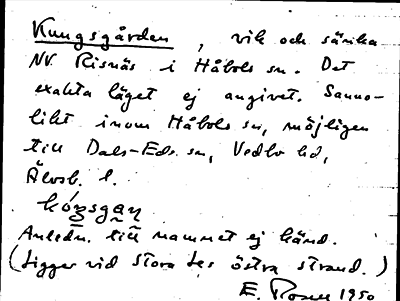 Kungsgården, vik och sänka
NV Risnäs i Håbols sn. Det
exakta läget ej angivet. Sanno-
likt inom Håbols sn, möjligen
till Dals-Eds sn, Vedbo hd,
Älvsb. l.
kóŋsgaṇ
Anledn. till namnet ej känd.
(Ligger vid Stora Les östra strand.)
E. Rosell 1950